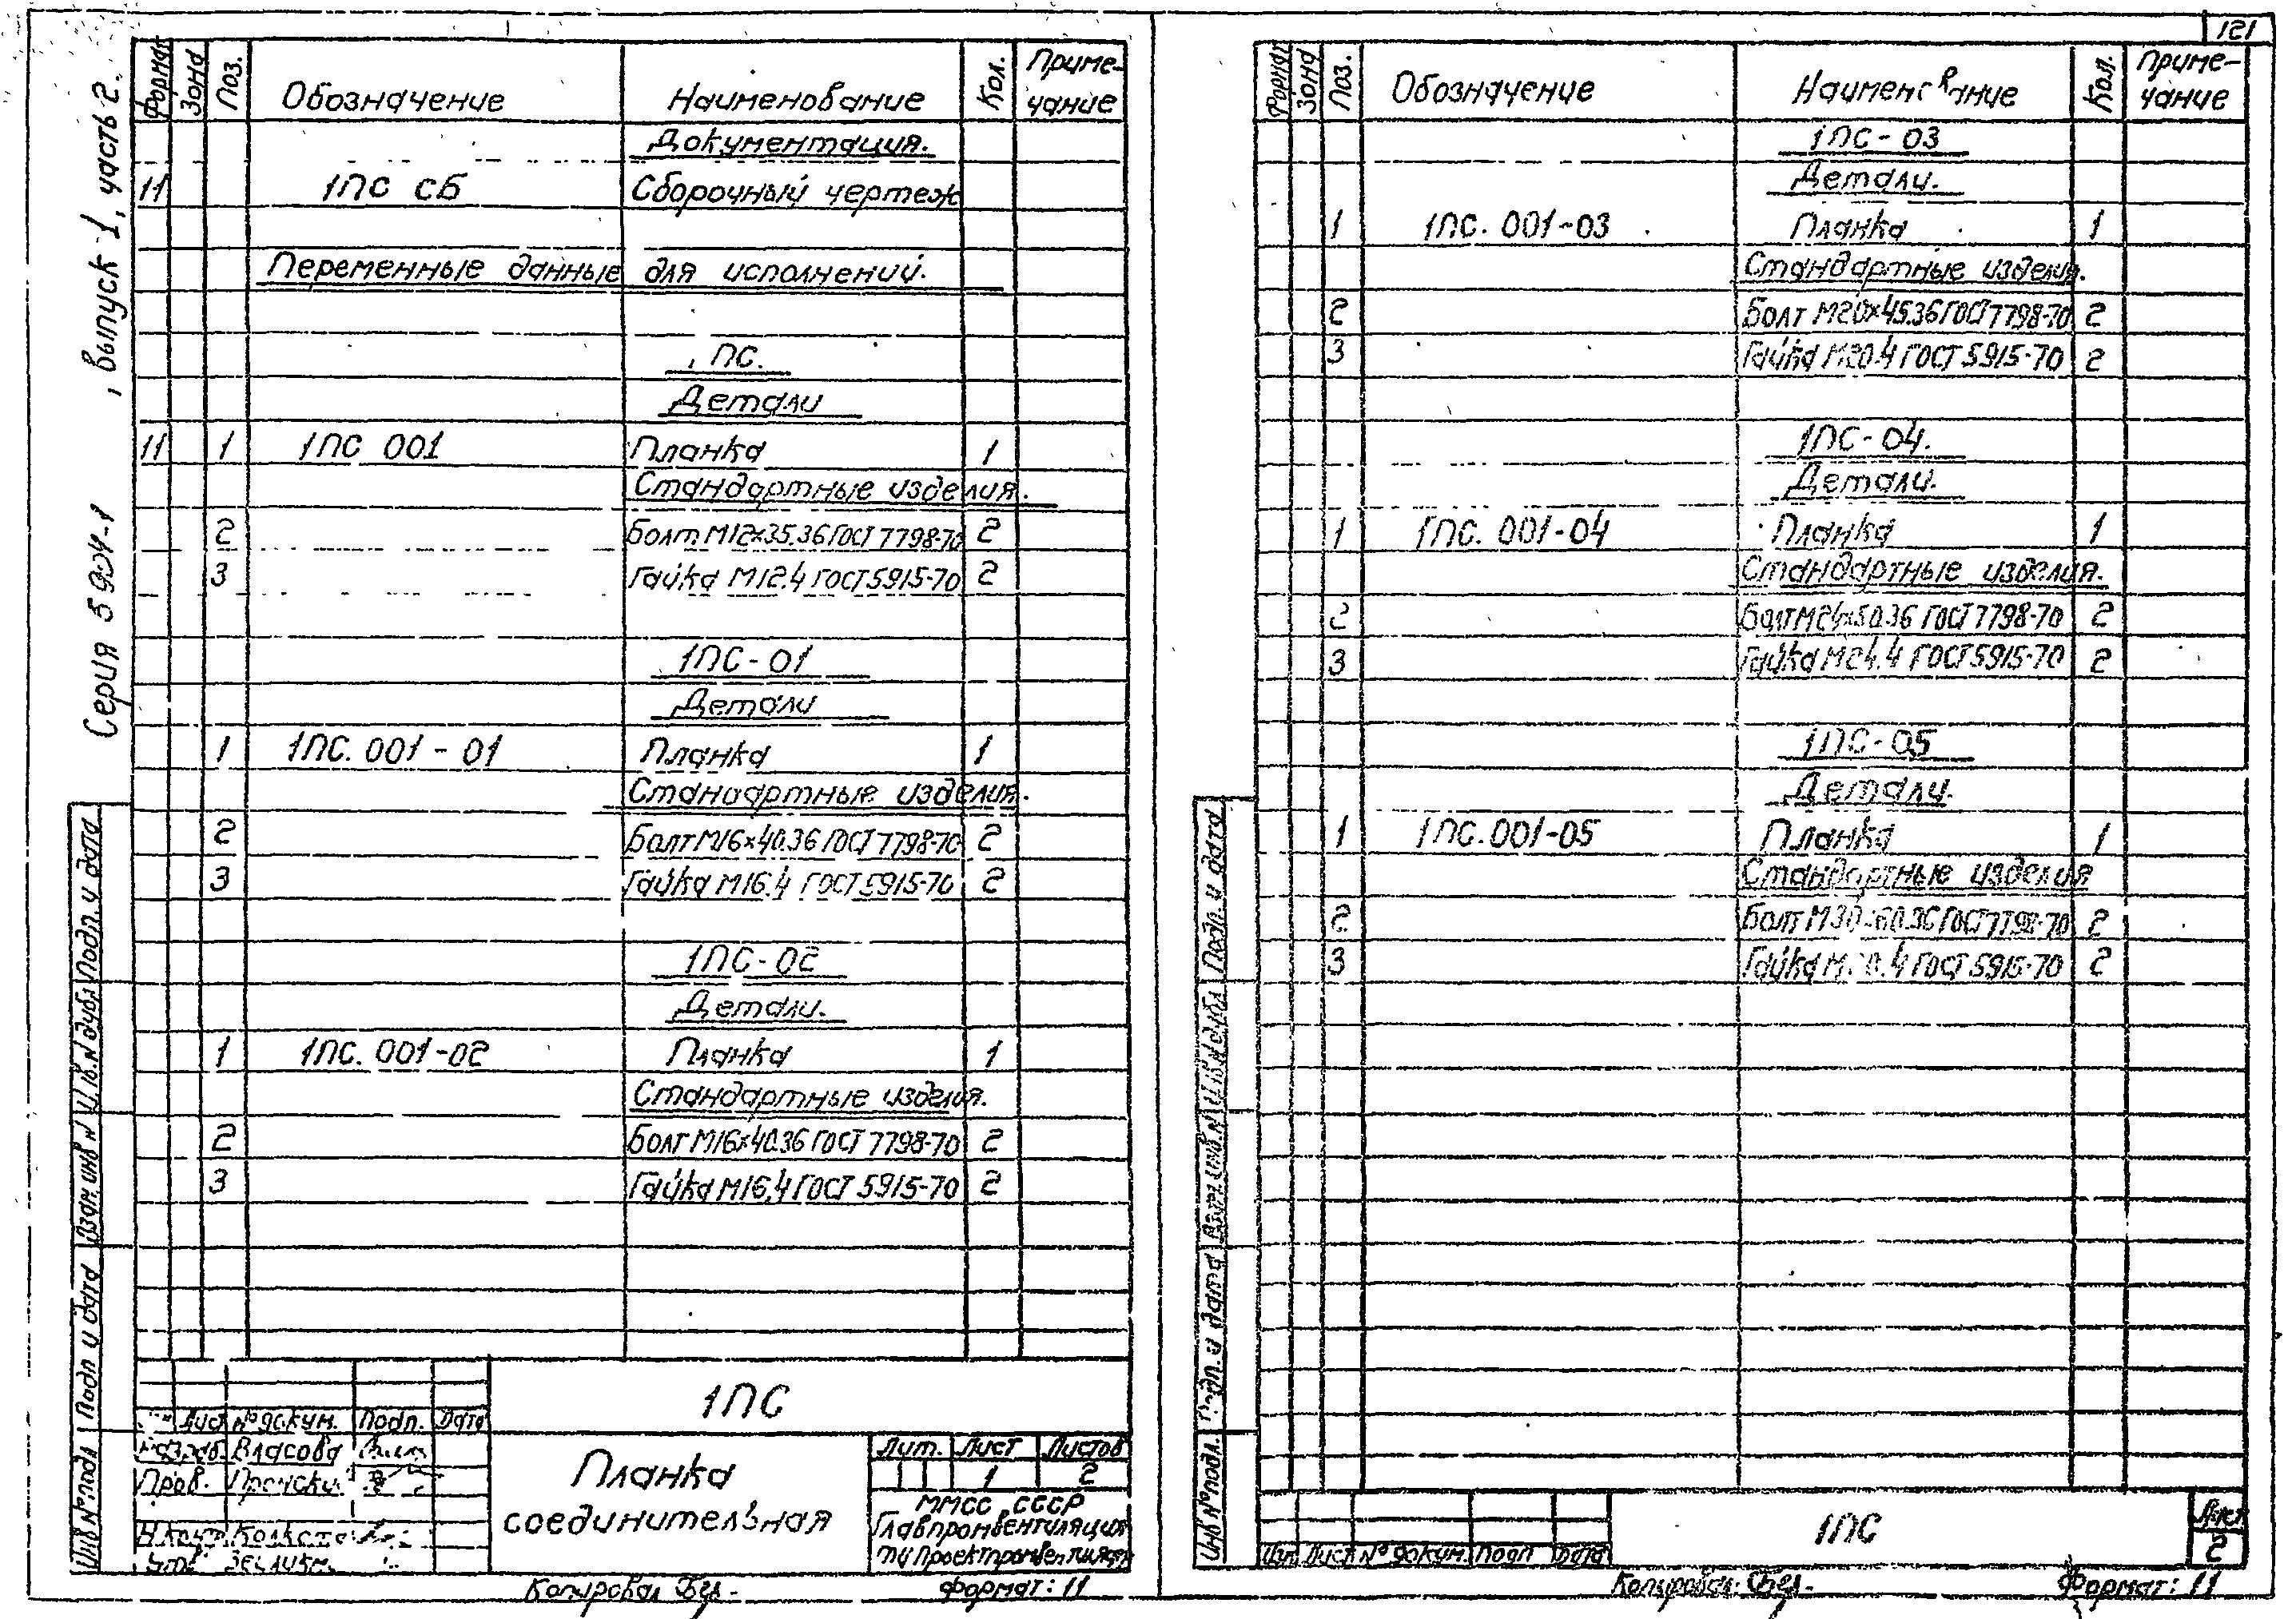 121
Серия 5.904-1
, выпуск 1, часть 2.
Формат Зона Поз. Обозначение Наименование Кол. Приме-
чание
Документация.
11 1ПС СБ Сборочный чертеж
Переменные данные для исполнений.
ПС.
Детали
11 1 1ПС 001 Планка 1
Стандартные изделия.
2 Болт М12×35.36 ГОСТ 7798-70 2
3 Гайка М12.4 ГОСТ 5915-70 2
1ПС-01
Детали
1 1ПС.001-01 Планка 1
Стандартные изделия.
2 Болт М16×40.36 ГОСТ 7798-70 2
3 Гайка М16.4 ГОСТ 5915-70 2
1ПС-02
Детали.
1 1ПС.001-02 Планка 1
Стандартные изделия.
2 Болт М16×40.36 ГОСТ 7798-70 2
3 Гайка М16.4 ГОСТ 5915-70 2
Подп. и дата
Инв.№ дубл
Взам. инв №
Подп и дата
Инв № подл
1ПС
Лист № докум. Подп. Дата
Разраб. Власова
Пров.
Н.контр
Утв.
Планка
соединительная
Лит. Лист Листов
1 2
ММСС СССР
Главпромвентиляция
ГПИ Проектпромвентиляция
Копировал Формат: 11
Формат Зона Поз. Обозначение Наименование Кол. Приме-
чание
1ПС-03
Детали.
1 1ПС.001-03 Планка 1
Стандартные изделия.
2 Болт М20×45.36 ГОСТ 7798-70 2
3 Гайка М20.4 ГОСТ 5915-70 2
1ПС-04.
Детали.
1 1ПС.001-04 Планка 1
Стандартные изделия.
2 Болт М24×50.36 ГОСТ 7798-70 2
3 Гайка М24.4 ГОСТ 5915-70 2
1ПС-05
Детали.
1 1ПС.001-05 Планка 1
Стандартные изделия
2 Болт М30×60.36 ГОСТ 7798-70 2
3 Гайка М30.4 ГОСТ 5915-70 2
Подп. и дата
Инв.№ дубл
Взам инв.№
Подп. и дата
Инв № подл.
Изм Лист № докум. Подп Дата
1ПС
Лист
2
Копировал: Формат: 11